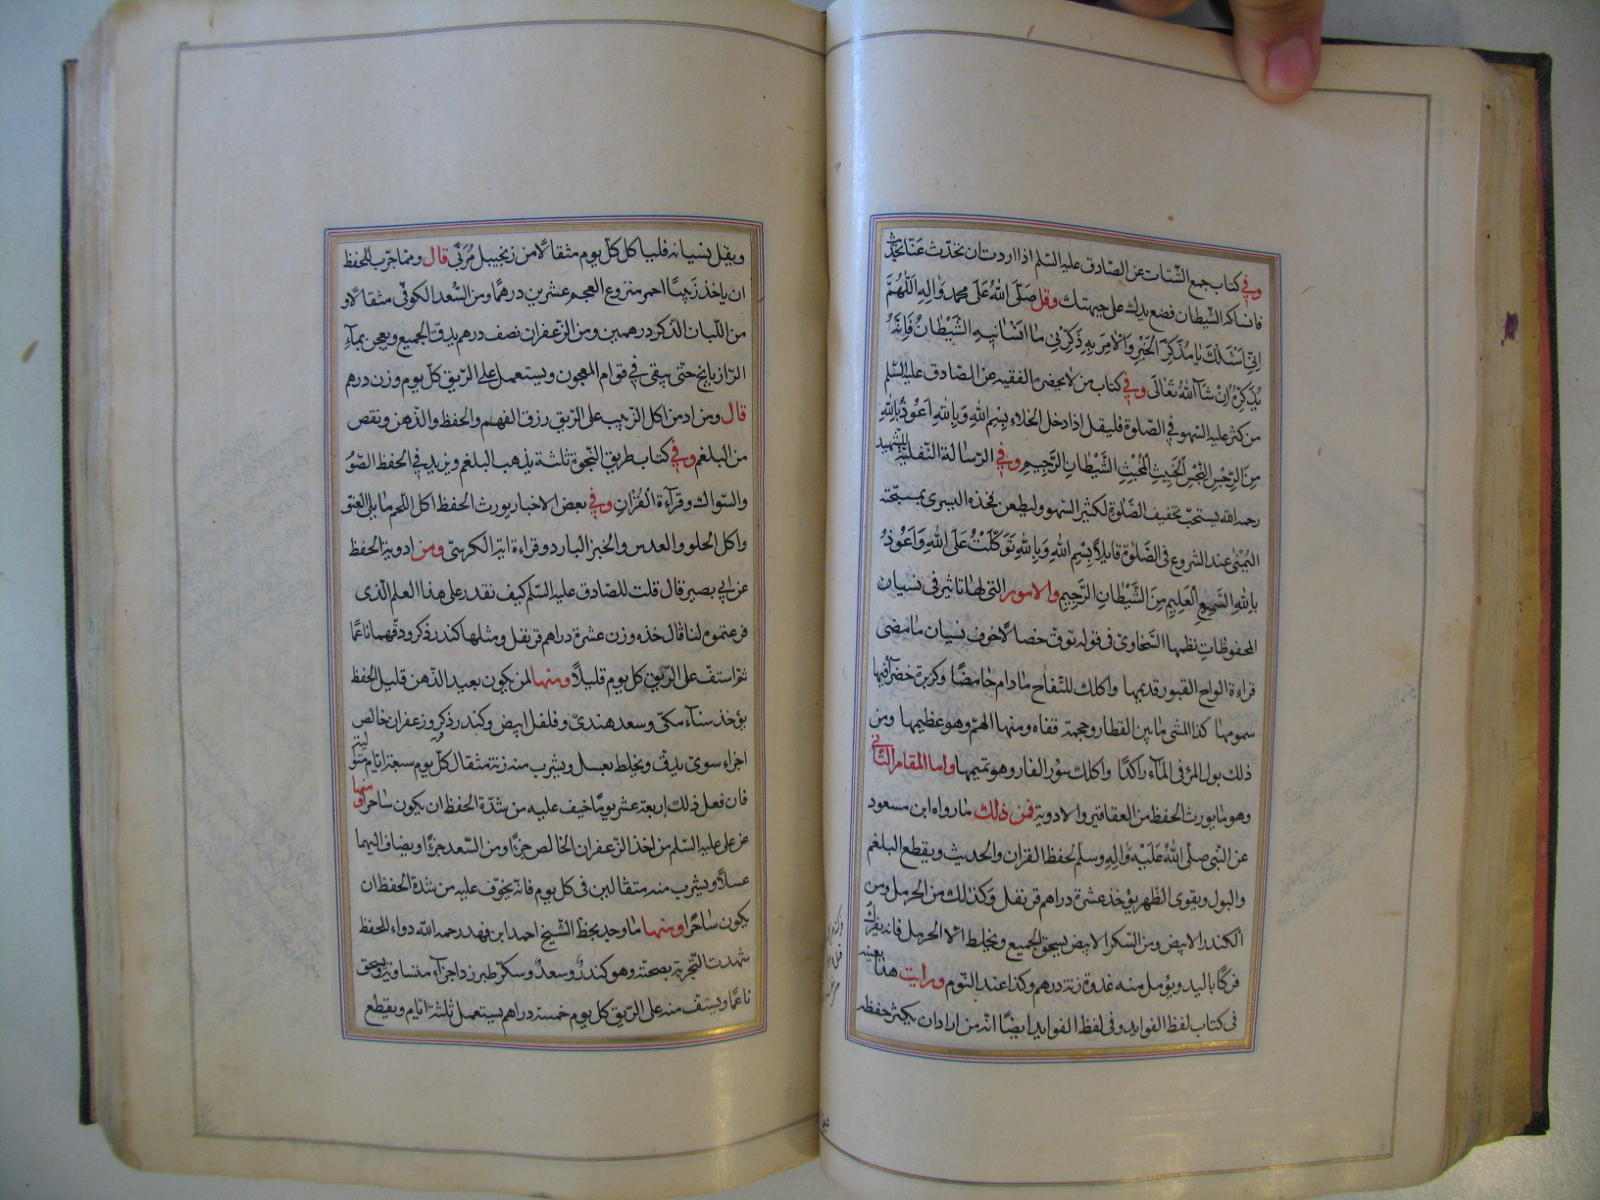 وفي كتاب جمع الشتات عن الصادق عليه السلم اذا اردت ان تحدث عنا بحديث
فانساكه الشيطان فضع يدك على جبهتك وقل صَلَّى اللهُ عَلَى محمد وَالِهِ اَللّٰهُمَّ
اِنّي اَسْئَلُكَ يَا مُذَكِّرَ الخَيْرِ وَالاٰمِرَ بِهِ ذَكِّرْنِي مَا اَنْسَانِيهِ الشَّيْطَانُ فَاِنَّهُ
يُذَكِّرُهُ اِنْ شَآءَ اللهُ تَعَالَى وفي كتاب من لا يحضره الفقيه عن الصادق عليه السلم
من كثر عليه السهو في الصلوة فليقل اذا دخل الخلاء بِسْمِ اللهِ وَبِاللهِ اَعوُذُ بِاللهِ
مِنَ الرِّجْسِ النَّجِسِ الْخَبِيثِ الْمُخْبِثِ الشَّيْطَانِ الرَّجِيمِ وفي الرسالة النفلية للشهيد
رحمه الله يستحب تخفيف الصلوة لكثير السهو وليطعن فخذه اليسرى بمسبحته
اليُمْنٰى عند الشروع في الصلوة قايلاً بِسْمِ اللهِ وَبِاللهِ تَوَكَّلْتُ عَلَى اللهِ وَاَعُوذُ
بِاللهِ السَّمِيعِ الْعَلِيمِ مِنَ الشَّيْطَانِ الرَّجِيمِ والامور التي لها تاثير في نسيان
المحفوظات نظمها السخاوي في قوله توق خصالاً خوف نسيان ما مضى
قراءة الواح القبور قديمها واكلك للتفاح ما دام حامضا وكزبرة خضرآء فيها
سمومها كذا المشي ما بين القطار وحجمة قفاه ومنها الهم وهو عظيمها ومن
ذلك بول المرء في المآء راكدًا واكلك سؤر الفار وهو تميمها واما المقام الثاني
وهو ما يورث الحفظ من العقاقير والادوية فمن ذلك ما رواه ابن مسعود
عن النبي صلى اللهُ عَلَيْهِ وَالِهِ وسلم لحفظ القران والحديث ويقطع البلغم
والبول ويقوى الظهر يؤخذ عشرة دراهم قرنفل وكذلك من الحرمل ومن
الكندر الابيض ومن السكر الابيض يسحق الجميع ويخلط الا الحرمل فانه يفرك
فركًا باليد ويؤكل منه غدوة زنة درهم وكذا عند النوم ورايت هذا بعينه
في كتاب لفظ الفوايد وفي لفظ الفوايد ايضًا انه من اراد ان يكثر حفظه
ويقل نسيانه فلياكل كل يوم مثقالاً من زنجبيل مُرَبّى قال ومما جرب للحفظ
ان ياخذ زبيبًا احمر منزوع العجم عشرين درهمًا ومن السُّعد الكوفي مثقالاً و
من اللبان الذكر درهمين ومن الزعفران نصف درهم يدق الجميع ويعجن بمآء
الرازيانج حتى يبقى في قوام المعجون ويستعمل على الريق كل يوم وزن درهم
قال ومن ادمن اكل الزبيب على الريق رزق الفهم والحفظ والذهن ونقص
من البلغم وفي كتاب طريق النجوة ثلثة يذهب البلغم ويزيد في الحفظ الصَّوْ
والسواك وقراءة الْقُرْانِ وفي بعض الاخبار يورث الحفظ اكل اللحم ما يلي العنق
واكل الحلو والعدس والخبز البارد وقراءة اية الكرسي ومن ادوية الحفظ
عن ابي بصير قال قلت للصادق عليه السلم كيف نقدر على هذا العلم الذي
فرعتموه لنا قال خذه وزن عشرة دراهم قرنفل ومثلها كندر ذكر ودقهما ناعمًا
ثم استف على الريق كل يوم قليلاً ومنها لمن يكون بعيد الذهن قليل الحفظ
يؤخذ سنآء مكي وسعد هندي وفلفل ابيض وكندر ذكر وزعفران خالص
اجزاء سوى يدق ويخلط بعسل ويشرب منه زنة مثقال كل يوم سبعة ايام متوالية
فان فعل ذلك اربعة عشر يومًا خيف عليه من شدة الحفظ ان يكون ساحرا ومنها
عن علي عليه السلم من اخذ الزعفران الخالص جزءًا ومن السعد جزءًا ويضاف اليهما
عسلاً ويشرب منه مثقالين في كل يوم فانه يتخوف عليه من شدة الحفظ ان
يكون ساحرًا ومنها ما وجد بخط الشيخ احمد ابن فهد رحمه الله دواء للحفظ
شهدت التجربة بصحته وهو كندرٌ وسعدٌ وسكر طبرزد اجزآء متساوية ويسحق
ناعمًا ويستف منه على الريق كل يوم خمسة دراهم يستعمل ثلثة ايام ويقطع